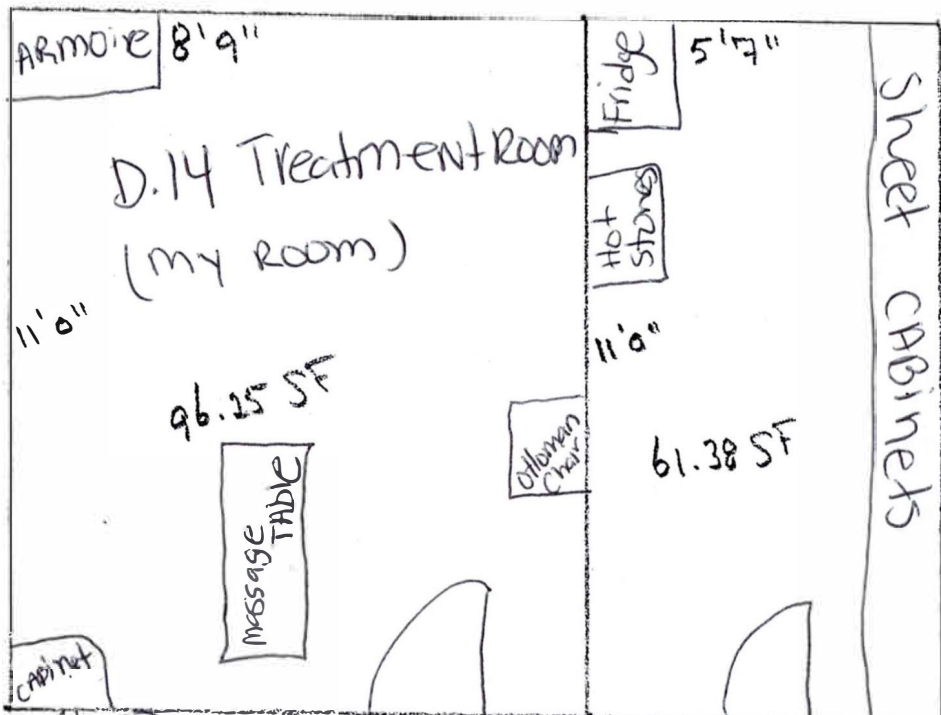 ARMOIRE
8'9"
D.14 Treatment Room
(my Room)
11'0"
96.25 SF
Massage
TABLE
Ottoman
Chair
CABinet
Fridge
5'7"
Hot
Stones
11'0"
61.38 SF
Sheet CABinets